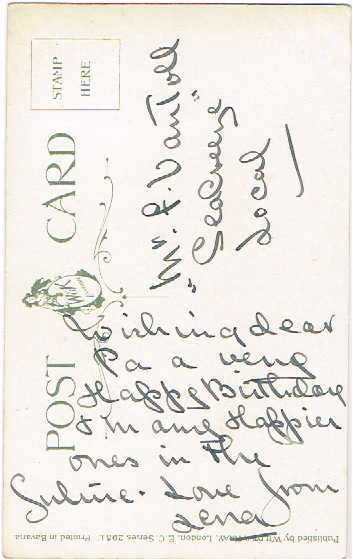 POST CARD
STAMP
HERE
Mr. F. VanToll
"Seabreeze"
Local
Wishing dear
Pa a very
Happy Birthday
& many Happier
ones in the
Future. Love from
Lena
Published by Wildt & Kray, London, E.C. Series 2951. Printed in Bavaria